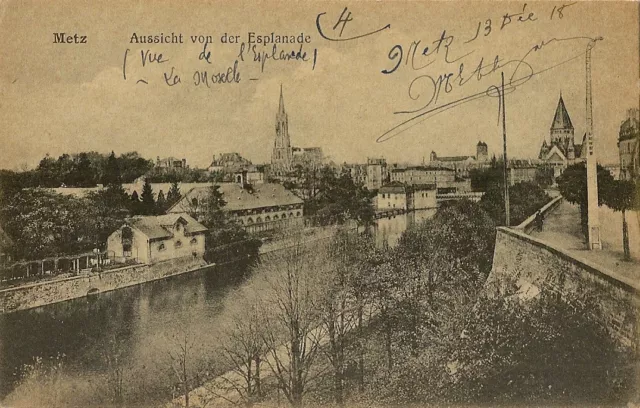 Metz Aussicht von der Esplanade
(Vue de l'Esplanade)
La Moselle
4
Metz 13 Déc 18